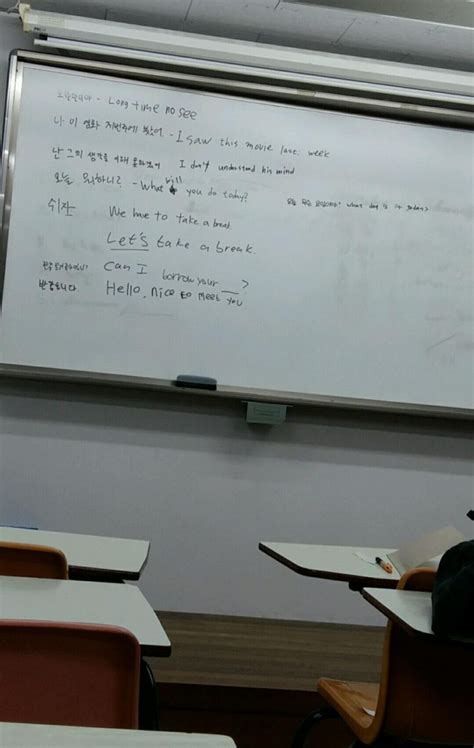 오랜만이야 - Long time no see
나 이 영화 저번주에 봤어 - I saw this movie last week
난 그의 생각을 이해 못하겠어 I don't understand his mind
오늘 뭐하니? - What will you do today?
오늘 무슨 요일이야? what day is it today?
쉬자 We have to take a break.
Let's take a break.
Can I borrow your ?
반갑습니다 Hello, nice to meet you